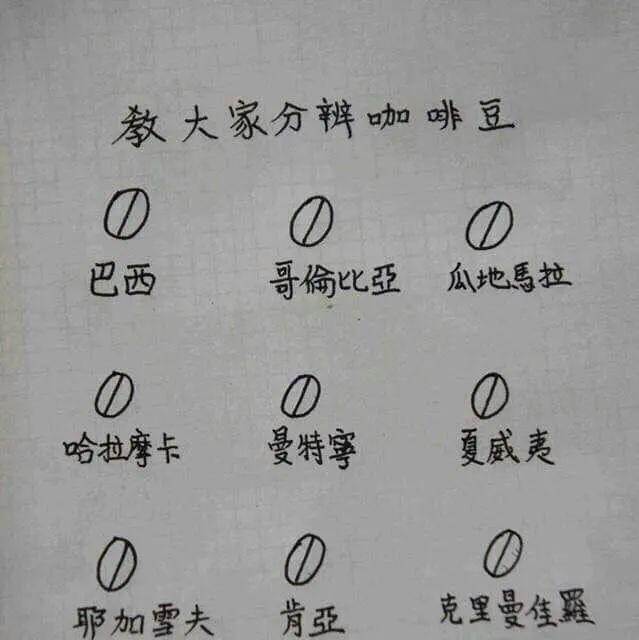 教大家分辨咖啡豆
巴西 哥倫比亞 瓜地馬拉
哈拉摩卡 曼特寧 夏威夷
耶加雪夫 肯亞 克里曼佳羅